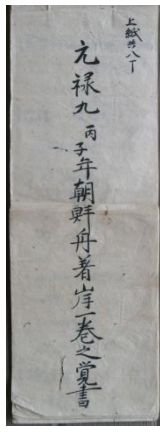 上紙共八丁
元禄九丙子年朝鮮舟著岸一巻之覚書